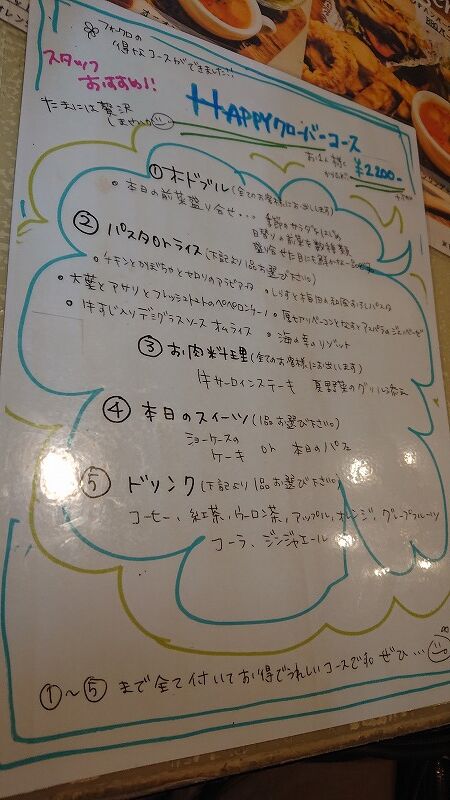 フォークロの
得々なコースができました!!
スタッフ
おすすめ!!
たまには贅沢
しませんか
HAPPYクローバーコース
お1人様
¥2,200-
①オードブル(全てのお客様にお出しします)
・本日の前菜盛り合せ… 季節のサラダをはじめ
日替りの前菜を数種類
盛り合せた目にも鮮やかな一品
② パスタorライス(下記より1品お選び下さい)
・チキンとかぼちゃとセロリのアラビアータ ・しらすと の和風だしパスタ
・大葉とアサリとフレッシュトマトのペペロンチーノ ・厚切りベーコンとなすとアスパラのジェノベーゼ
・牛すじ入りデミグラスソース オムライス ・海の幸のリゾット
③ お肉料理(全てのお客様にお出しします)
牛サーロインステーキ 夏野菜のグリル添え
④ 本日のスイーツ(1品お選び下さい)
ショーケースの
ケーキ or 本日のパフェ
⑤ ドリンク(下記より1品お選び下さい)
コーヒー、紅茶、ウーロン茶、アップル、オレンジ、グレープフルーツ
コーラ、ジンジャエール
①~⑤まで全て付いてお得でうれしいコースです♪ぜひ…